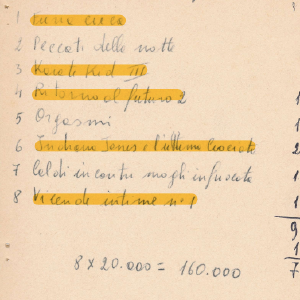 1 Furia cieca
2 Peccati della notte
3 Karate Kid III
4 Ritorno al futuro 2
5 Orgasmi
6 Indiana Jones e l'ultima Crociata
7 Caldi incontri mogli infuocate
8 Vicende intime n° 1
1
1
2
1
1
9
1
7
8 x 20.000 = 160.000